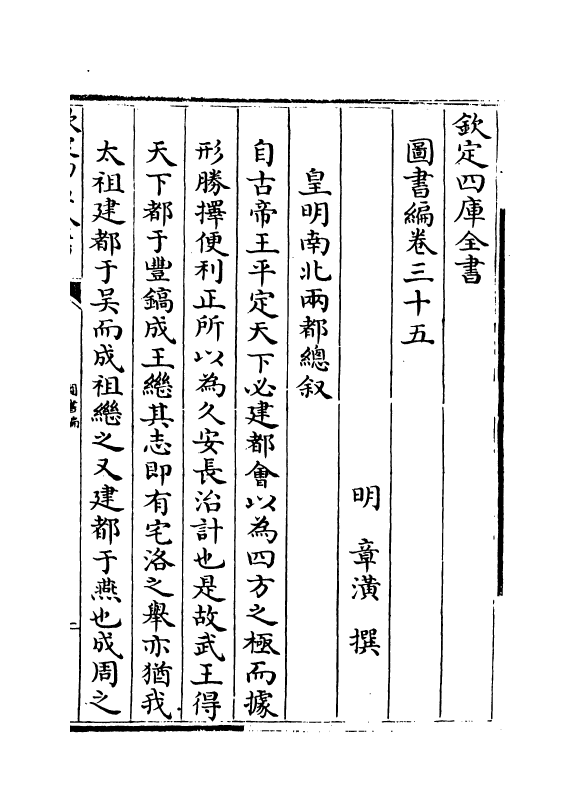 欽定四庫全書
圖書編卷三十五
明 章潢 撰
皇明南北兩都總叙
自古帝王平定天下必建都會以為四方之極而據
形勝擇便利正所以為久安長治計也是故武王得
天下都于豐鎬成王繼其志即有宅洛之舉亦猶我
太祖建都于吴而成祖繼之又建都于燕也成周之
圖書編